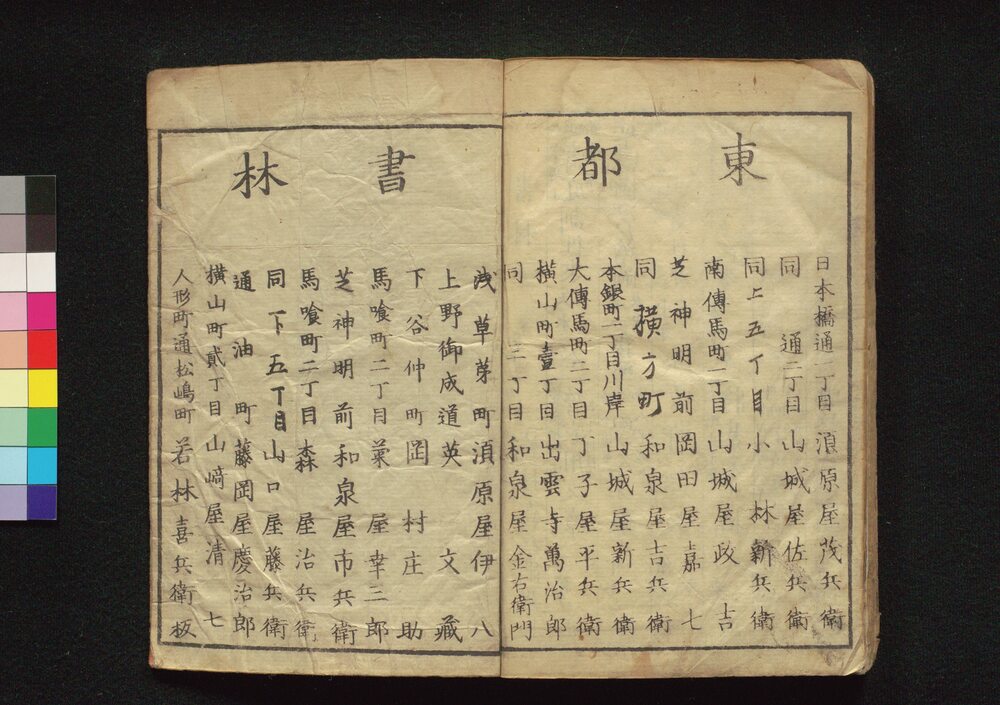 東都
日本橋通一丁目 須原屋茂兵衛
同 通二丁目 山城屋佐兵衛
同上五丁目 小林新兵衛
南傳馬町一丁目 山城屋政吉
芝神明前 岡田屋嘉七
同 横方町 和泉屋吉兵衛
本銀町一丁目川岸 山城屋新兵衛
大傳馬町二丁目 丁子屋平兵衛
横山町壹丁目 出雲寺萬治郎
同 三丁目 和泉屋金右衛門
書林
浅草茅町 須原屋伊八
上野御成道 英文藏
下谷仲町 岡村庄助
馬喰町二丁目 菊屋幸三郎
芝神明前 和泉屋市兵衛
馬喰町二丁目 森屋治兵衛
同下五丁目 山口屋藤兵衛
通油町 藤岡屋慶治郎
横山町貳丁目 山﨑屋清七
人形町通松嶋町 若林喜兵衛板